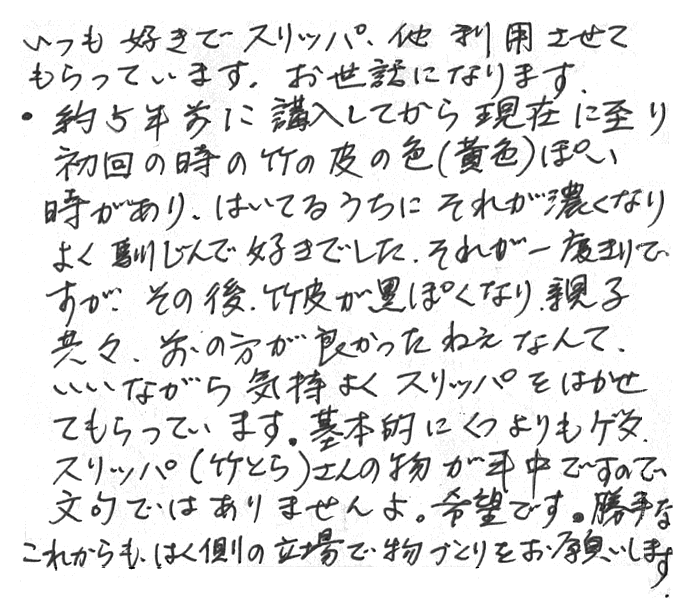 いつも好きでスリッパ、他利用させて
もらっています。お世話になります。
・約5年前に講入してから現在に至り
初回の時の竹の皮の色(黄色)ぽい
時があり、はいてるうちにそれが濃くなり
よく馴じんで好きでした。それが一度きりで
すが、その後、竹皮が黒ぽくなり、親子
共々、前の方が良かったねえなんて、
いいながら気持よくスリッパをはかせ
てもらっています。基本的にくつよりもゲタ、
スリッパ(竹とら)さんの物が年中ですので
文句ではありませんよ。希望です。勝手な
これからも、はく側の立場で物づくりをお願いします。